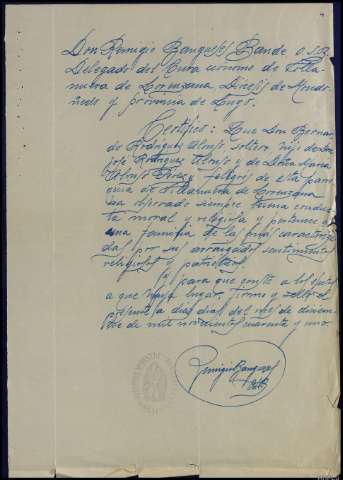 Don Remigio Bangueses Bande O.S.B.
Delegado del Cura ecónomo de Villa-
nueva de Lorenzana, Diócesis de Mondo-
ñedo y provincia de Lugo.
Certifico: Que Don Bernar-
do Rodríguez Alonso, soltero hijo de Don
José Rodríguez Alonso y de Doña María
Alonso Pérez, feligrés de esta parro-
quia de Villanueva de Lorenzana
ha observado siempre buena conduc-
ta moral y religiosa y pertenece a
una familia de las más caracteriza-
das por sus arraigados sentimientos
religiosos y patrióticos.
Y para que conste a los efectos
a que haya lugar, firmo y sello el
presente a días del mes de diciem-
bre de mil novecientos cuarenta y uno.
Remigio Bangueses